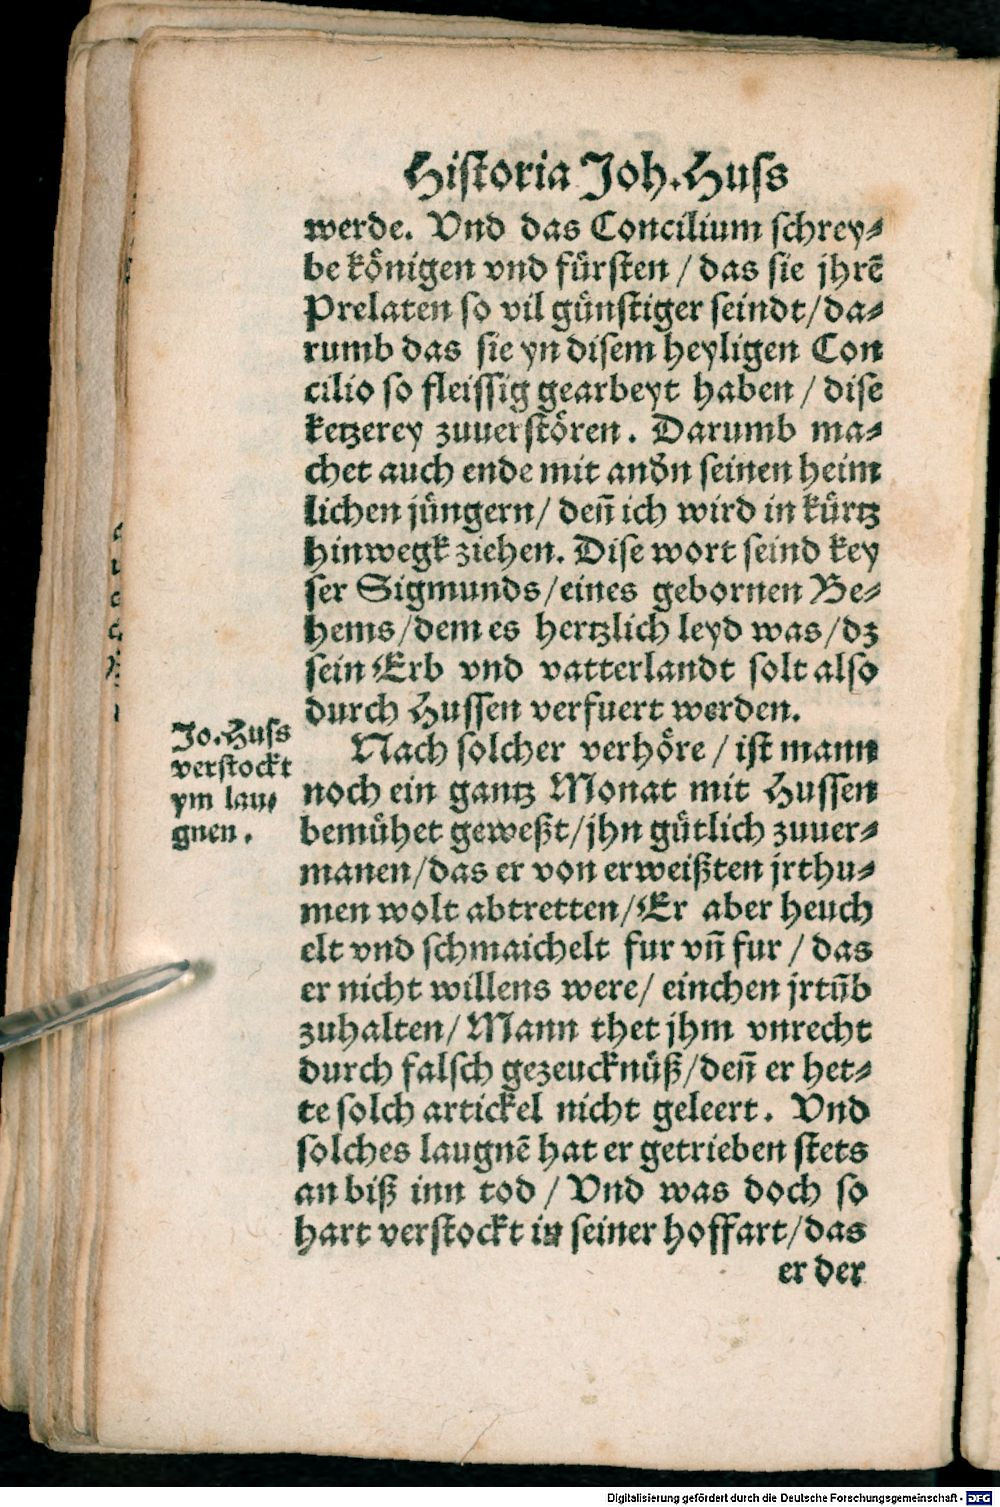 Historia Joh. Huss
werde. Vnd das Concilium schrey⸗
be koͤnigen vnd fuͤrsten / das sie jhrē
Prelaten so vil guͤnstiger seindt/da⸗
rumb das sie yn disem heyligen Con
cilio so fleissig gearbeyt haben / dise
ketzerey zuuerstoͤren. Darumb ma⸗
chet auch ende mit andn̄ seinen heim
lichen juͤngern/ deñ ich wird in kuͤrtz
hinwegk ziehen. Dise wort seind key
ser Sigmunds/eines gebornen Be⸗
hems/dem es hertzlich leyd was/dz
sein Erb vnd vatterlandt solt also
durch Hussen verfuert werden.
Jo. Huss
verstockt
ym lau⸗
gnen.
Nach solcher verhoͤre / ist mann
noch ein gantz Monat mit Hussen
bemuͤhet geweßt/jhn guͤtlich zuuer⸗
manen/das er von erweißten jrthu⸗
men wolt abtretten/Er aber heuch
elt vnd schmaichelt fur vñ fur / das
er nicht willens were/ einchen jrtūb
zuhalten/ Mann thet jhm vnrecht
durch falsch gezeucknuͤß/deñ er het⸗
te solch artickel nicht geleert. Vnd
solches laugnē hat er getrieben stets
an biß inn tod / Vnd was doch so
hart verstockt in seiner hoffart/das
er der
Digitalisierung gefördert durch die Deutsche Forschungsgemeinschaft - DFG